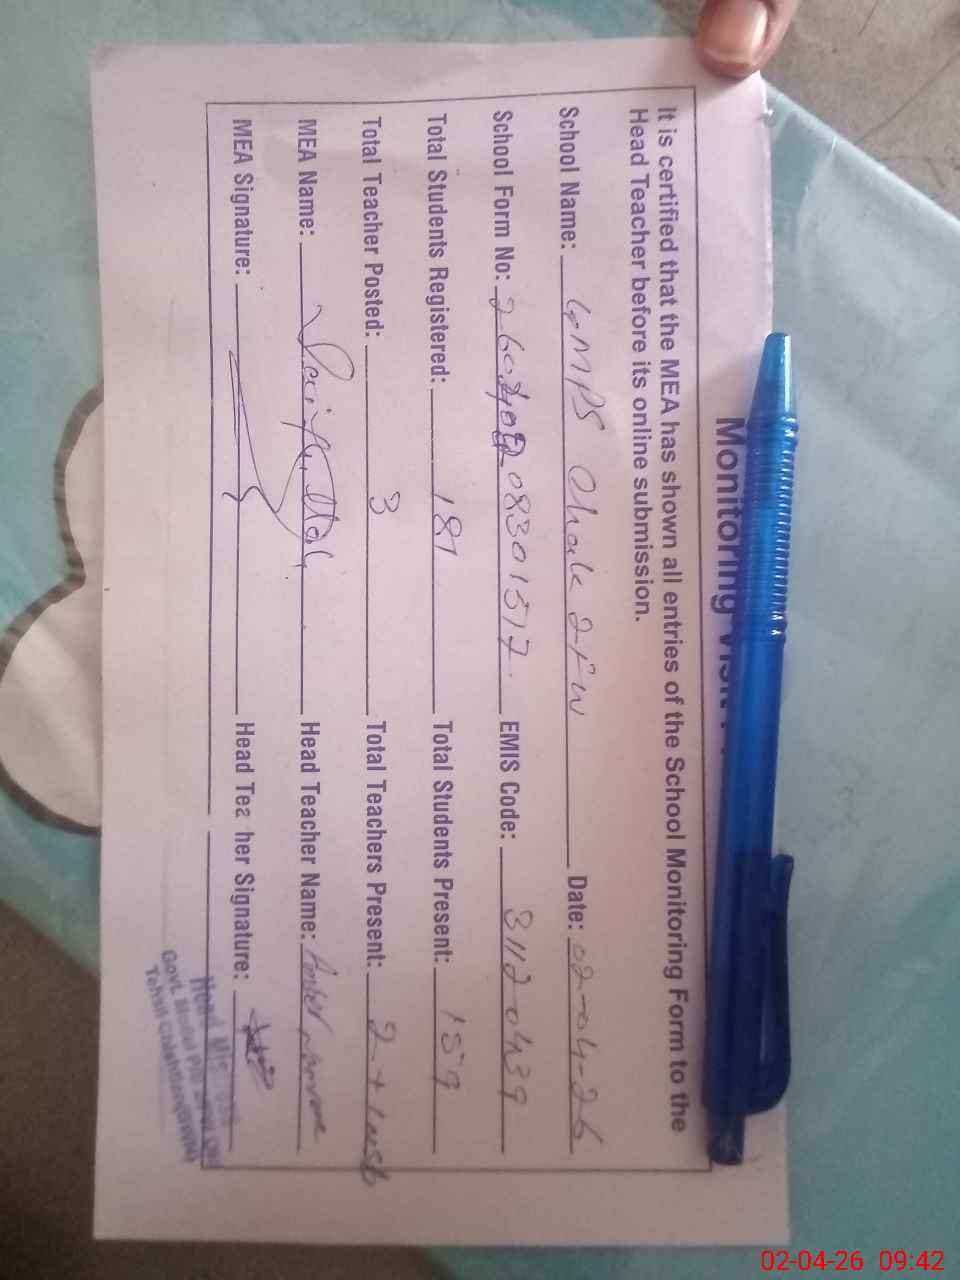 Monitoring Visit
It is certified that the MEA has shown all entries of the School Monitoring Form to the
Head Teacher before its online submission.
School Name: GMPS Chak 2+FW Date: 02-04-26
School Form No: 08301517 EMIS Code: 31120439
Total Students Registered: 187 Total Students Present: 159
Total Teacher Posted: 3 Total Teachers Present: 2+1
MEA Name: Head Teacher Name: Amber
MEA Signature: Head Teacher Signature:
Head
Govt. Model
Tehsil Chishtian
02-04-26 09:42